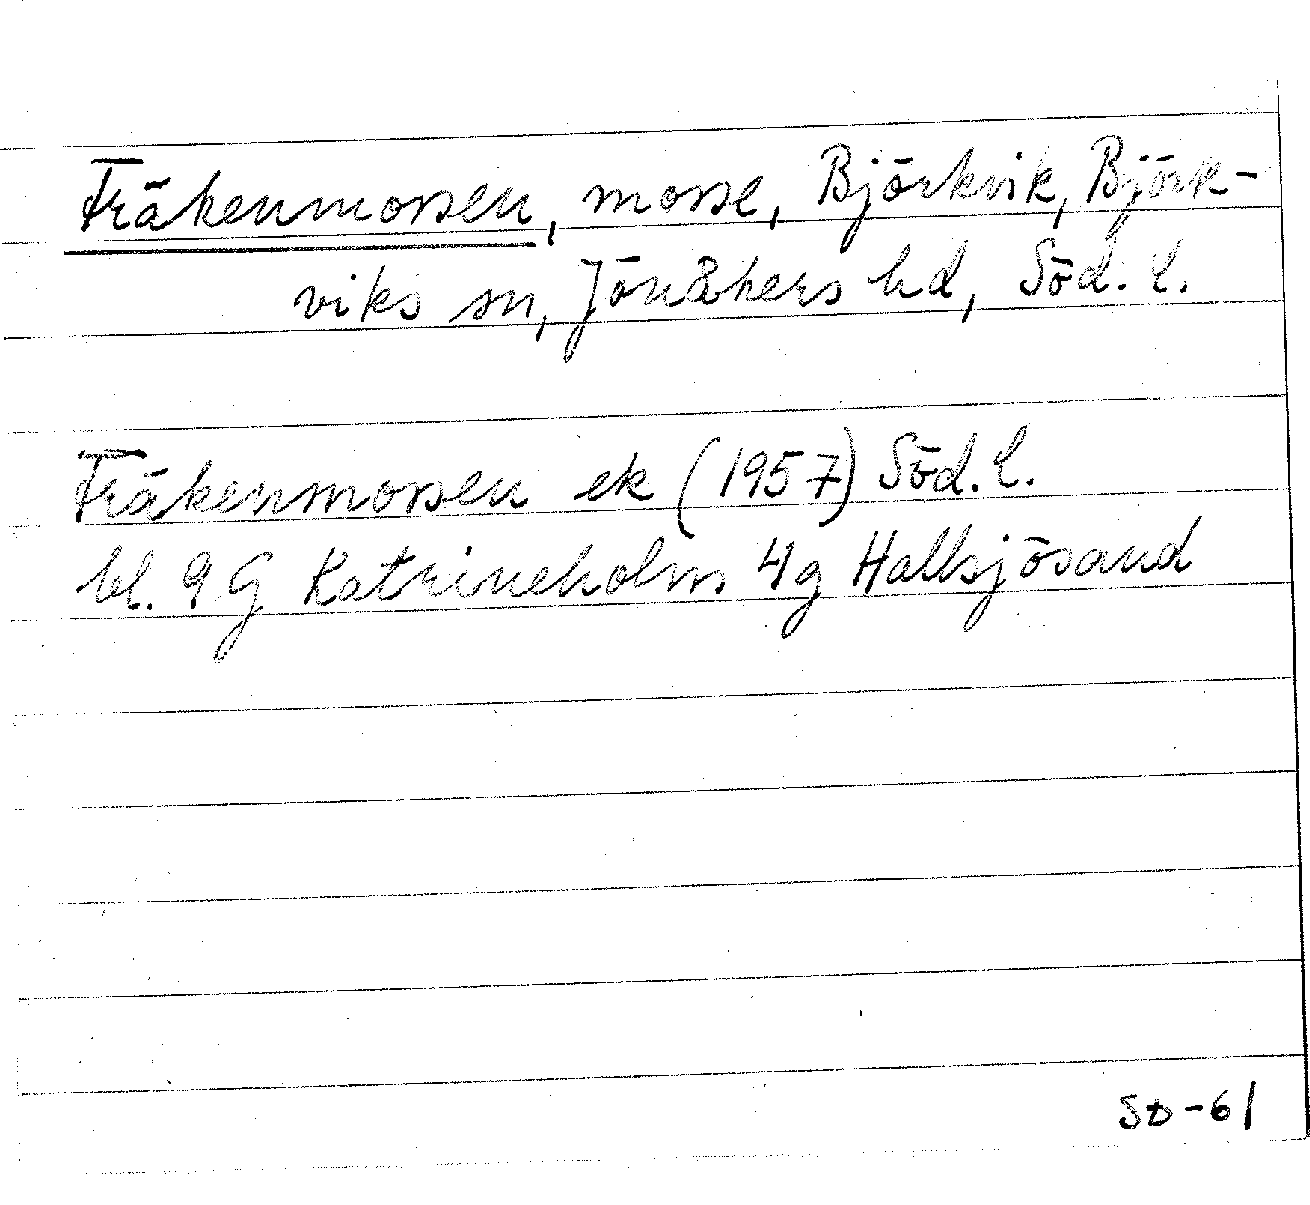 Fräkenmossen, mosse, Björkvik, Björk-
viks sn, Jönåkers hd, Söd. l.
Fräkenmossen ek (1957) Söd. l.
bl. 9G Katrineholm 4g Hallsjösand
SD-61